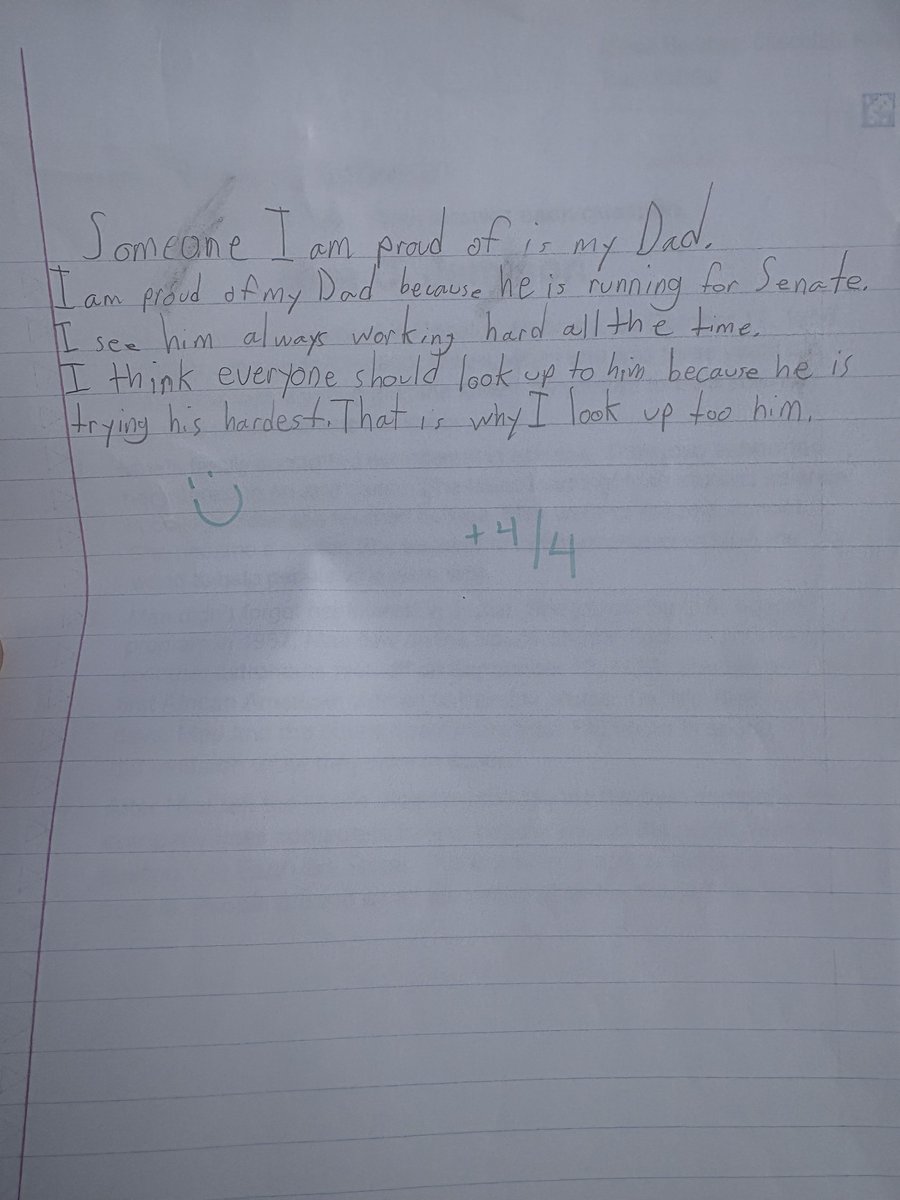 Someone I am proud of is my Dad.
I am proud of my Dad because he is running for Senate.
I see him always working hard all the time.
I think everyone should look up to him because he is
trying his hardest. That is why I look up too him.
+4/4